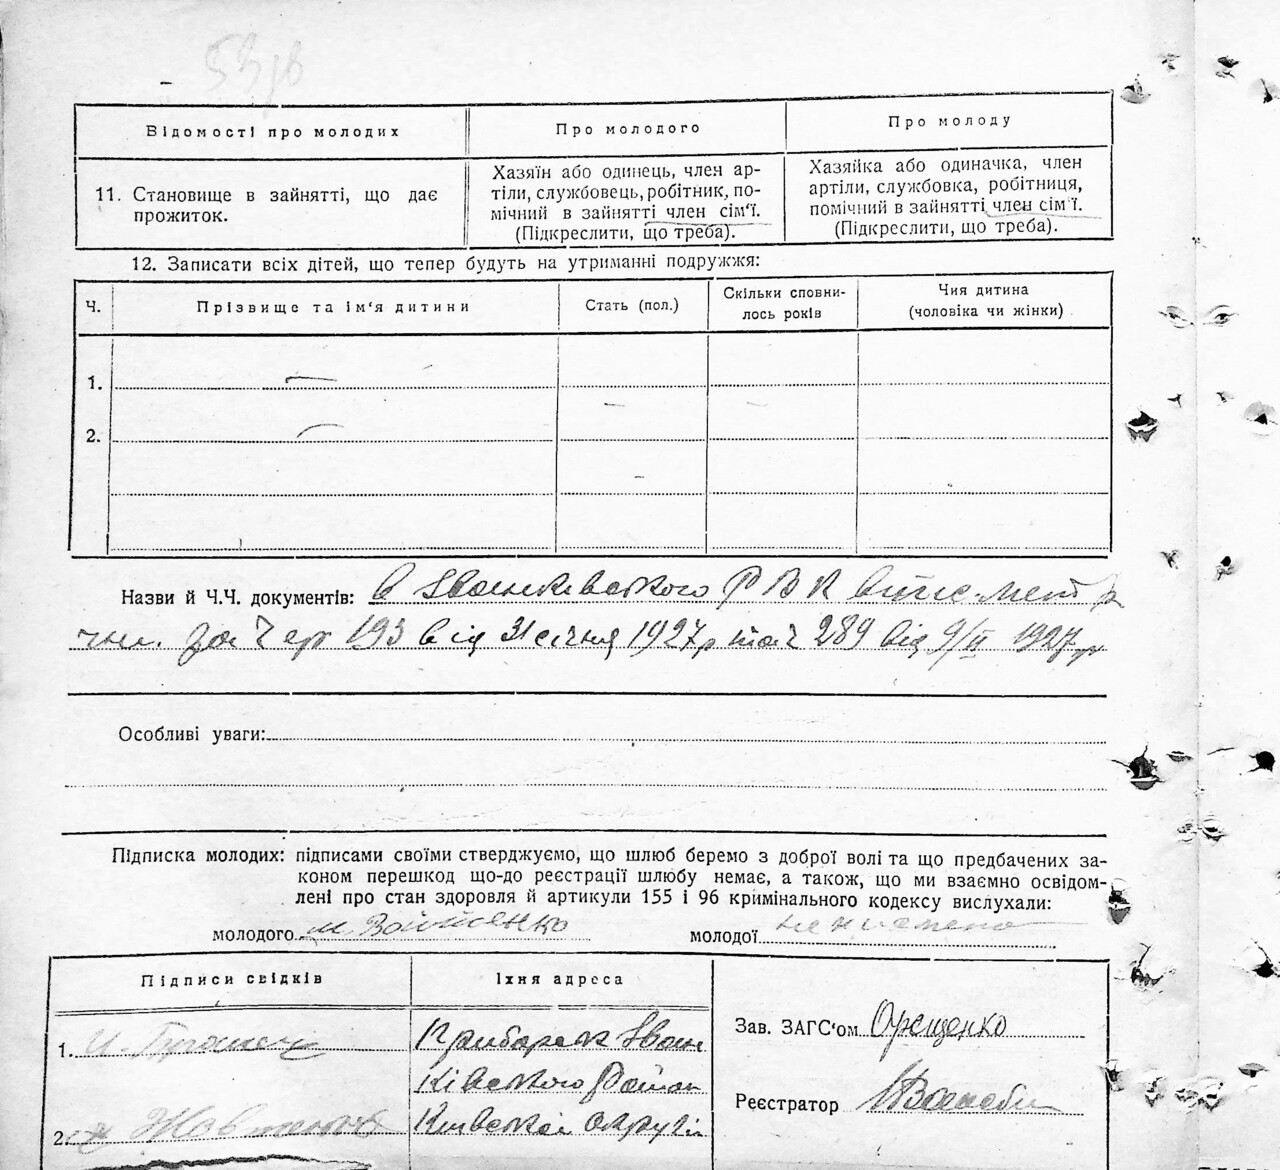 Відомості про молодих
Про молодого
Про молоду
11. Становище в зайнятті, що дає
прожиток.
Хазяїн або одинець, член ар-
тіли, службовець, робітник, по-
мічний в зайнятті член сім'ї.
(Підкреслити, що треба).
Хазяйка або одиначка, член
артіли, службовка, робітниця,
помічний в зайнятті член сім'ї.
(Підкреслити, що треба).
12. Записати всіх дітей, що тепер будуть на утриманні подружжя:
Ч.
Прізвище та ім'я дитини
Стать (пол.)
Скільки сповни-
лось років
Чия дитина
(чоловіка чи жінки)
1.
2.
Назви й Ч.Ч. документів: в Іванківського РВК
за ч 193 від 31 січня 1927 р та ч 289 від 9/II 1927 р
Особливі уваги:
Підписка молодих: підписами своїми стверджуємо, що шлюб беремо з доброї волі та що предбачених за-
коном перешкод що-до реєстрації шлюбу немає, а також, що ми взаємно освідом-
лені про стан здоровля й артикули 155 і 96 кримінального кодексу вислухали:
молодого м Войтенко
молодої неписьмена
Підписи свідків
Їхня адреса
1.
Прибірськ Іван
ківського Район
2.
Київської округи
Зав. ЗАГС'ом Орещенко
Реєстратор